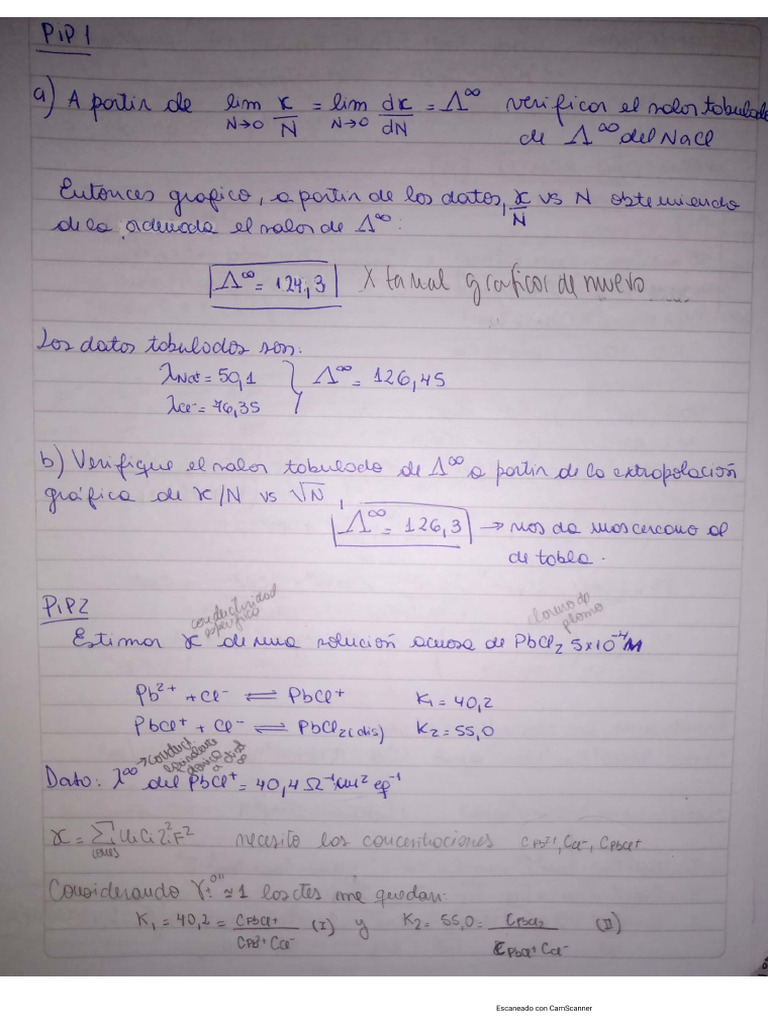 PiP1
a) A partir de lim N→0 ϰ/N = lim N→0 dϰ/dN = Λ^∞ verificar el valor tabulado
de Λ^∞ del NaCl
Entonces grafico, a partir de los datos, ϰ/N vs N obteniendo
de la ordenada el valor de Λ^∞:
Λ^∞ = 124,3 X ta mal graficor de nuevo
Los datos tabulados son:
λNa+ = 50,1 } Λ^∞ = 126,45
λCl- = 76,35
b) Verifique el valor tabulado de Λ^∞ a partir de la extrapolación
gráfica de ϰ/N vs √N,
Λ^∞ = 126,3 → nos da mas cercano al
de tabla.
PiP2
conductividad
específica
cloruro de
plomo
Estimar ϰ de una solución acuosa de PbCl2 5x10^-4 M
Pb^2+ + Cl^- ⇌ PbCl^+ K1 = 40,2
PbCl^+ + Cl^- ⇌ PbCl2(dis) K2 = 55,0
→ conduct
Dato: λ^∞ del PbCl^+ = 40,4 Ω^-1 cm^2 eq^-1
ϰ = Σ iones Ui Ci Zi^2 F^2 necesito las concentraciones CPb2+, CCl-, CPbCl+
Considerando γ± ≃ 1 las ctes me quedan:
K1 = 40,2 = CPbCl+ / CPb2+ CCl- (I) y K2 = 55,0 = CPbCl2 / CPbCl+ CCl- (II)
Escaneado con CamScanner